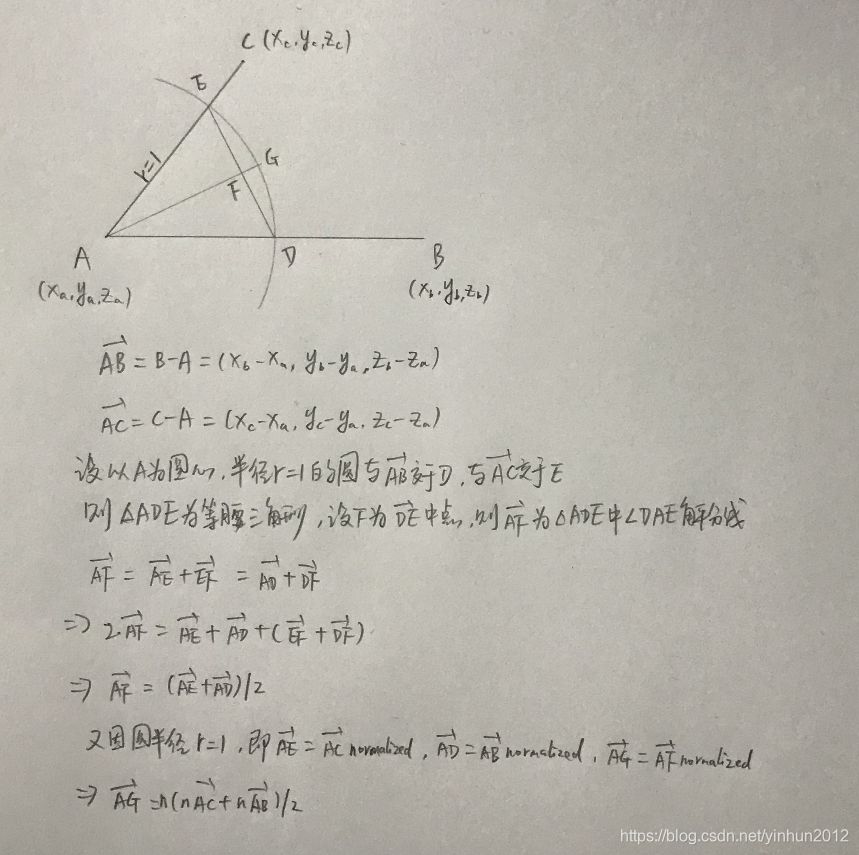 C (xc,yc,zc)
E
r=1
G
F
A
D
B
(xa,ya,za)
(xb,yb,zb)
AB = B-A = (xb-xa, yb-ya, zb-za)
AC = C-A = (xc-xa, yc-ya, zc-za)
设以A为圆心,半径r=1的圆与AB交于D,与AC交于E
则 △ADE为等腰三角形,设F为DE中点,则AF为△ADE中∠DAE角平分线
AF = AE + EF = AD + DF
=> 2AF = AE + AD + (EF + DF)
=> AF = (AE+AD)/2
又因圆半径r=1,即AE = AC normalized, AD = AB normalized, AG = AF normalized
=> AG = n(nAC + nAB)/2
https://blog.csdn.net/yinhun2012